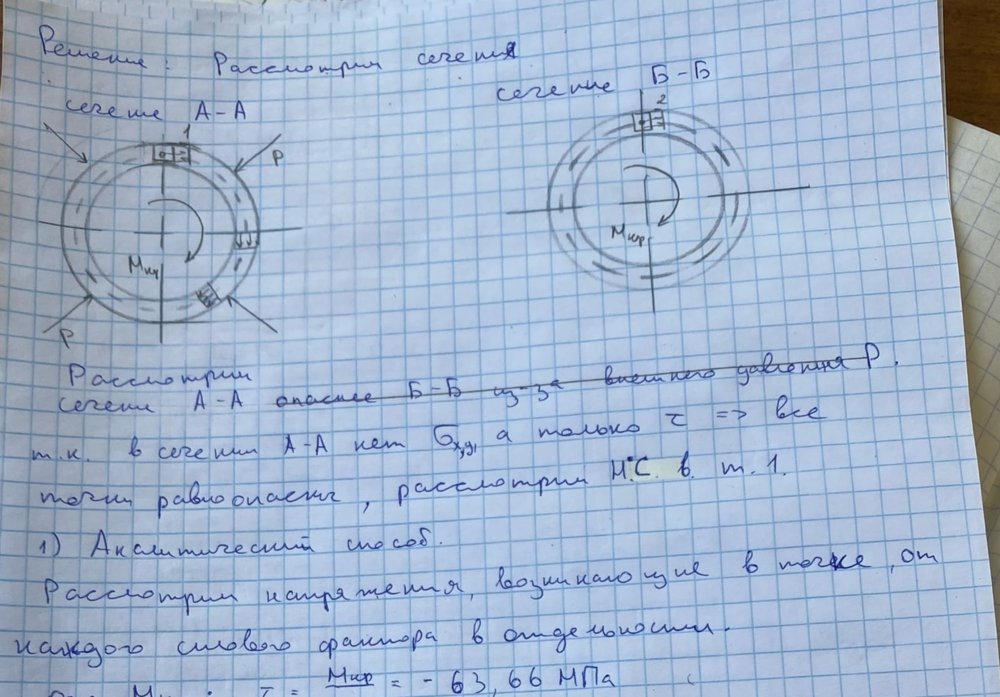 Решение: Рассмотрим сечения
сечение А-А
сечение Б-Б
1
2
P
Mкр
Mкр
P
Рассмотрим
сечение А-А опаснее Б-Б из-за внешнего давления P.
т.к. в сечении А-А нет σx,y, а только τ => все
точки равноопасны, рассмотрим Н.С. в т. 1.
1) Аналитический способ.
Рассмотрим напряжения, возникающие в точке, от
каждого силового фактора в отдельности.
Mкр: τ = Mкр = - 63,66 МПа